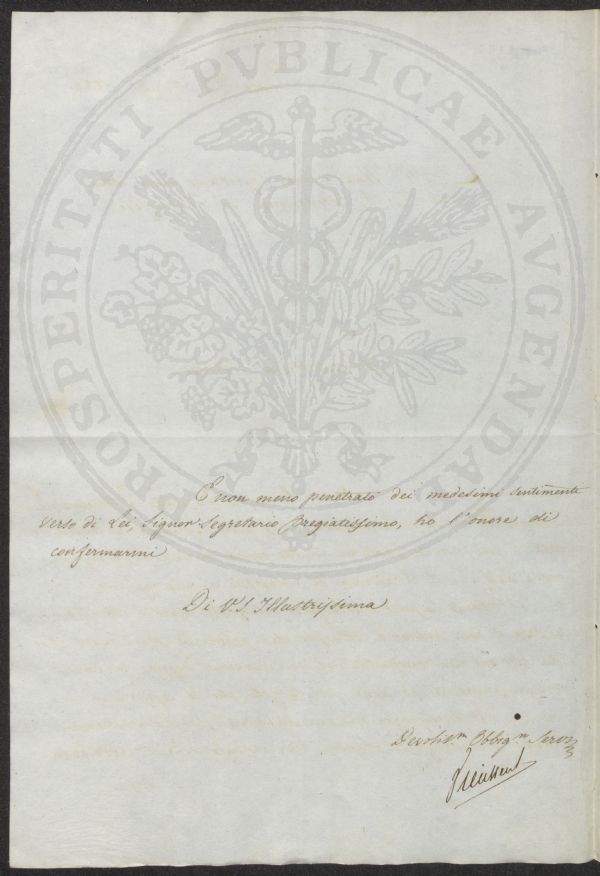 PROSPERITATI PVBLICAE AVGENDAE
E non meno penetrato dei medesimi sentimenti
verso di Lei, Signor Segretario Pregiatissimo, ho l'onore di
confermarmi
Di V.S. Illustrissima
Devotis.m Obblig.m Serv